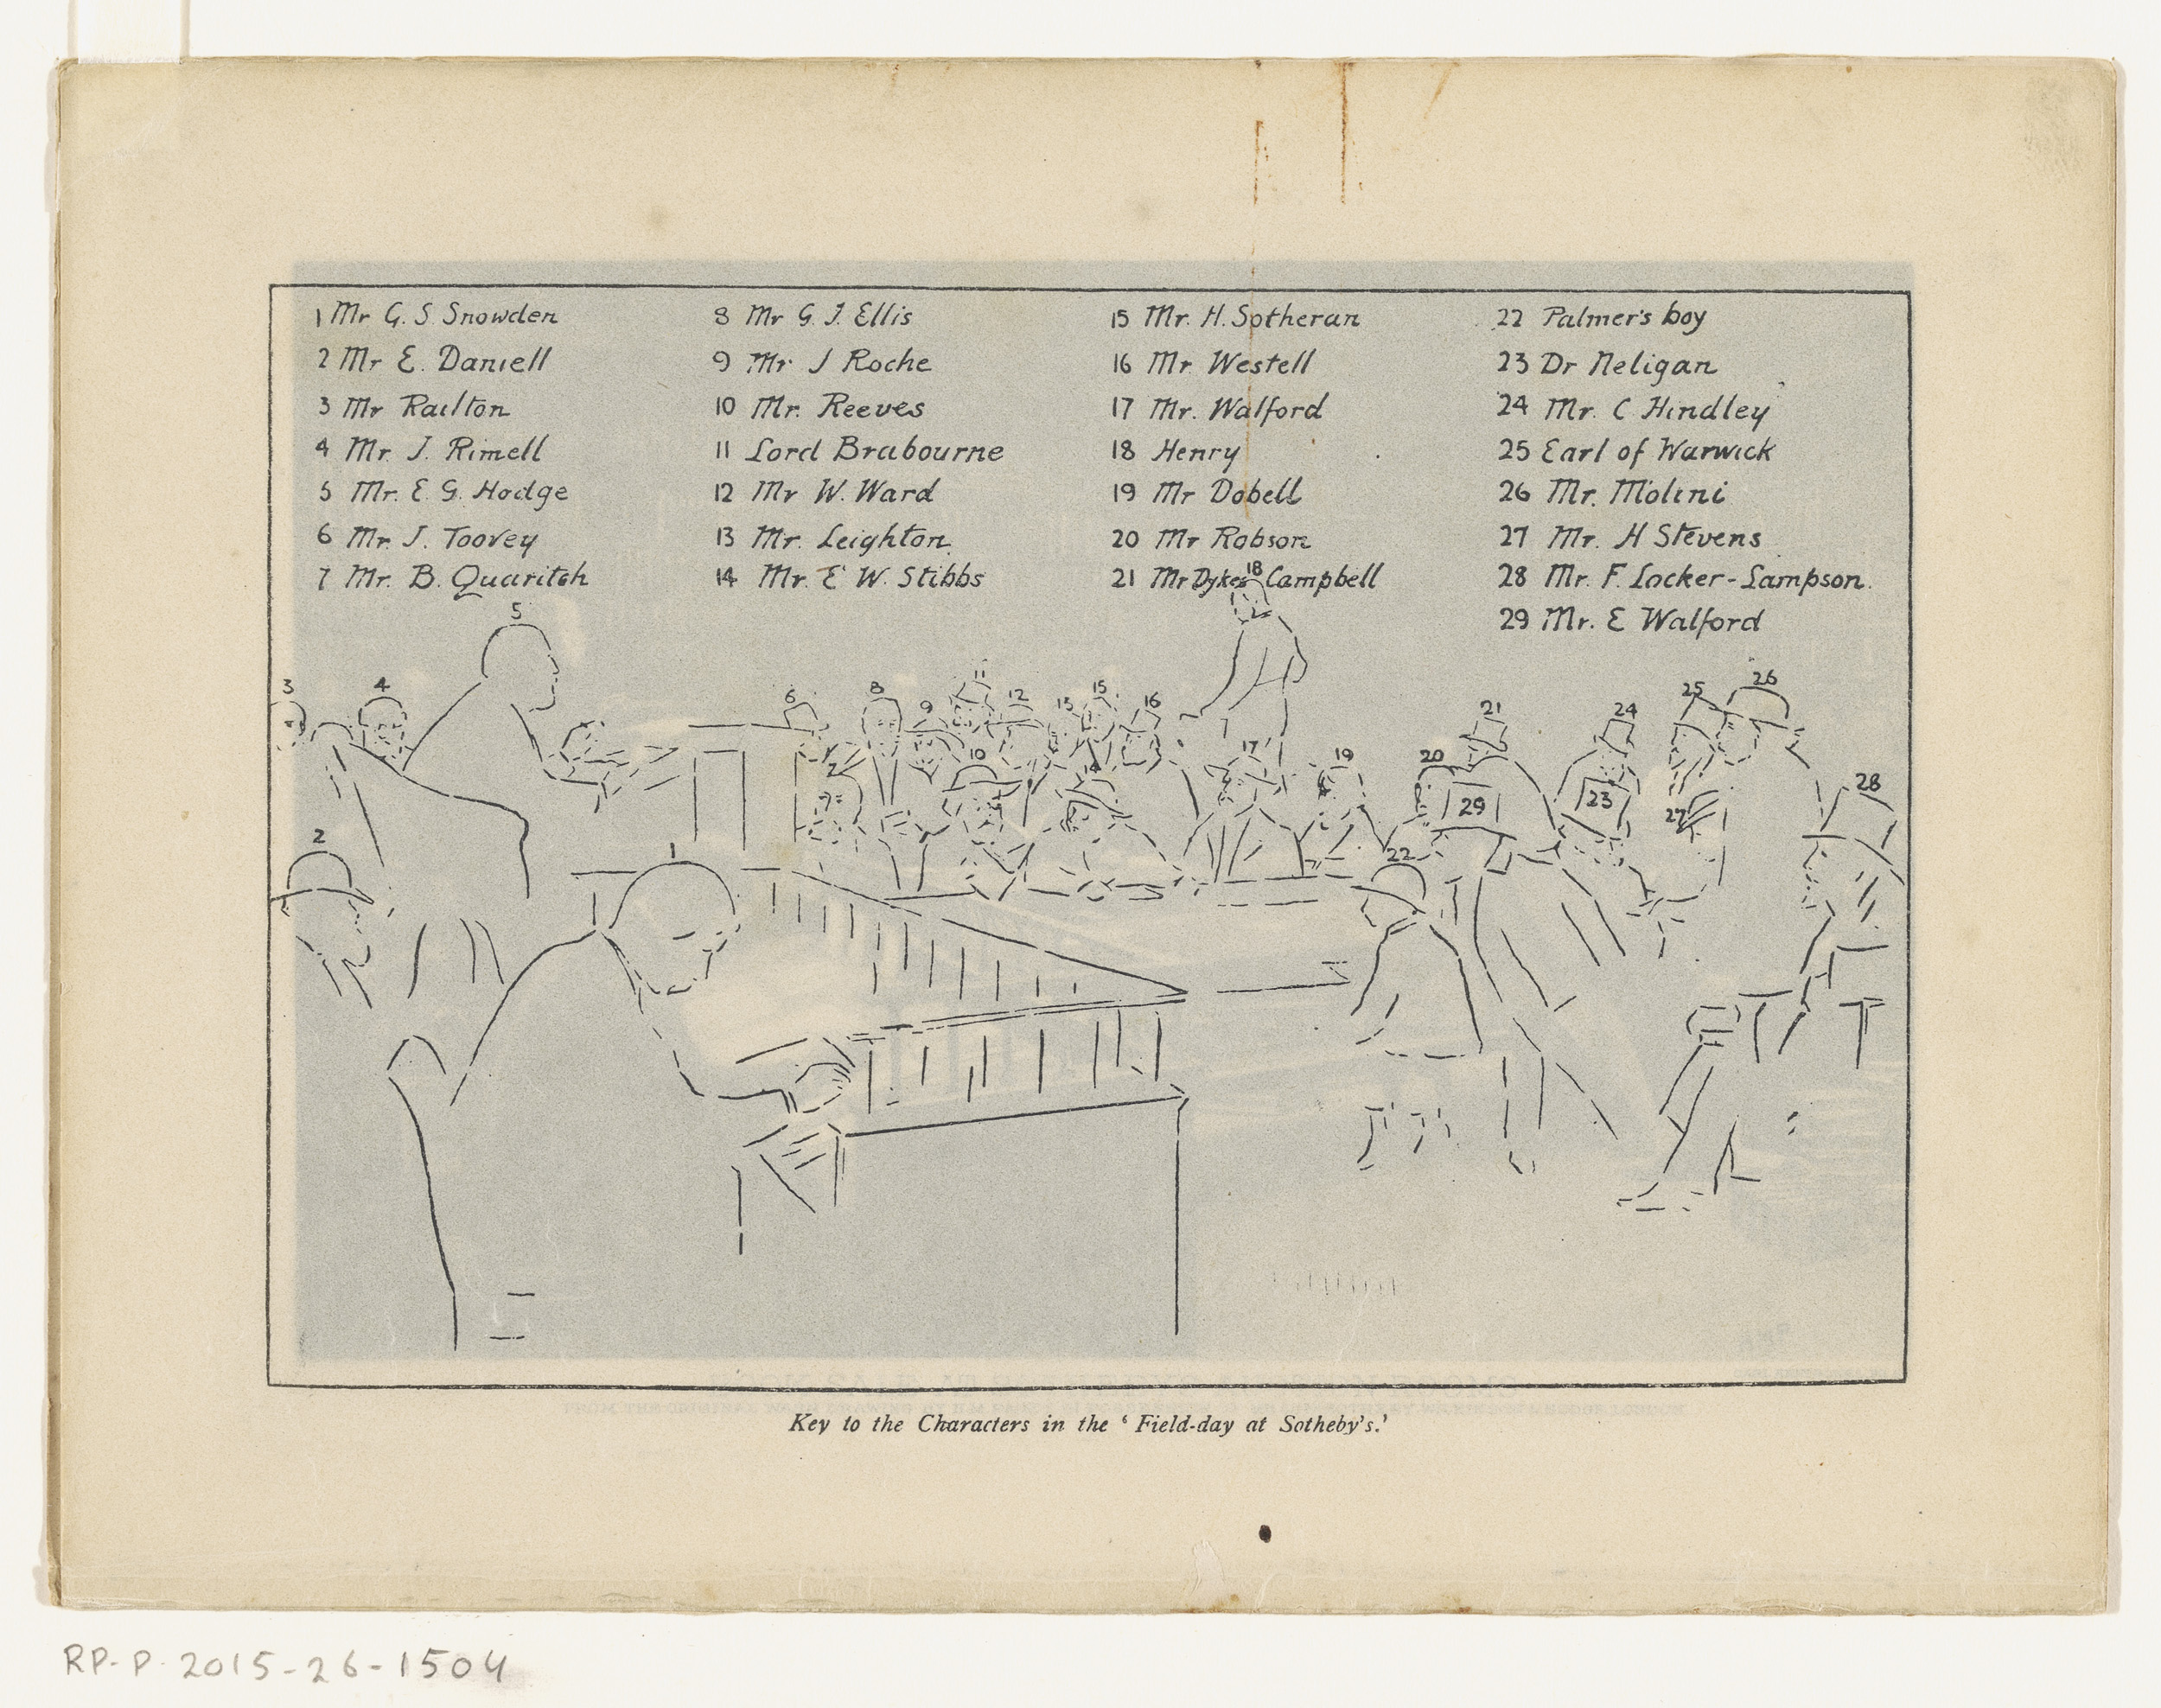 1 Mr G. S. Snowden
2 Mr E. Daniell
3 Mr Railton
4 Mr. J. Rimell
5 Mr. E. G. Hodge
6 Mr. J. Toovey
7 Mr. B. Quaritch
8 Mr G. I. Ellis
9 Mr. J Roche
10 Mr. Reeves
11 Lord Brabourne
12 Mr W. Ward
13 Mr. Leighton
14 Mr. E W. Stibbs
15 Mr. H. Sotheran
16 Mr Westell
17 Mr. Walford
18 Henry
19 Mr Dobell
20 Mr Robson
21 Mr Dykes Campbell
22 Palmer's boy
23 Dr Neligan
24 Mr. C Hindley
25 Earl of Warwick
26 Mr. Molini
27 Mr. H Stevens
28 Mr. F. Locker-Lampson.
29 Mr. E Walford
18
5
3
4
6
8
9
11
12
13
15
16
21
24
25
26
7
10
14
17
19
20
29
23
27
28
2
1
22
Key to the Characters in the 'Field-day at Sotheby's.'
RP-P-2015-26-1504